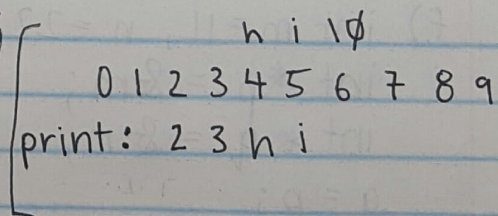 h i \0
0 1 2 3 4 5 6 7 8 9
print: 2 3 h i